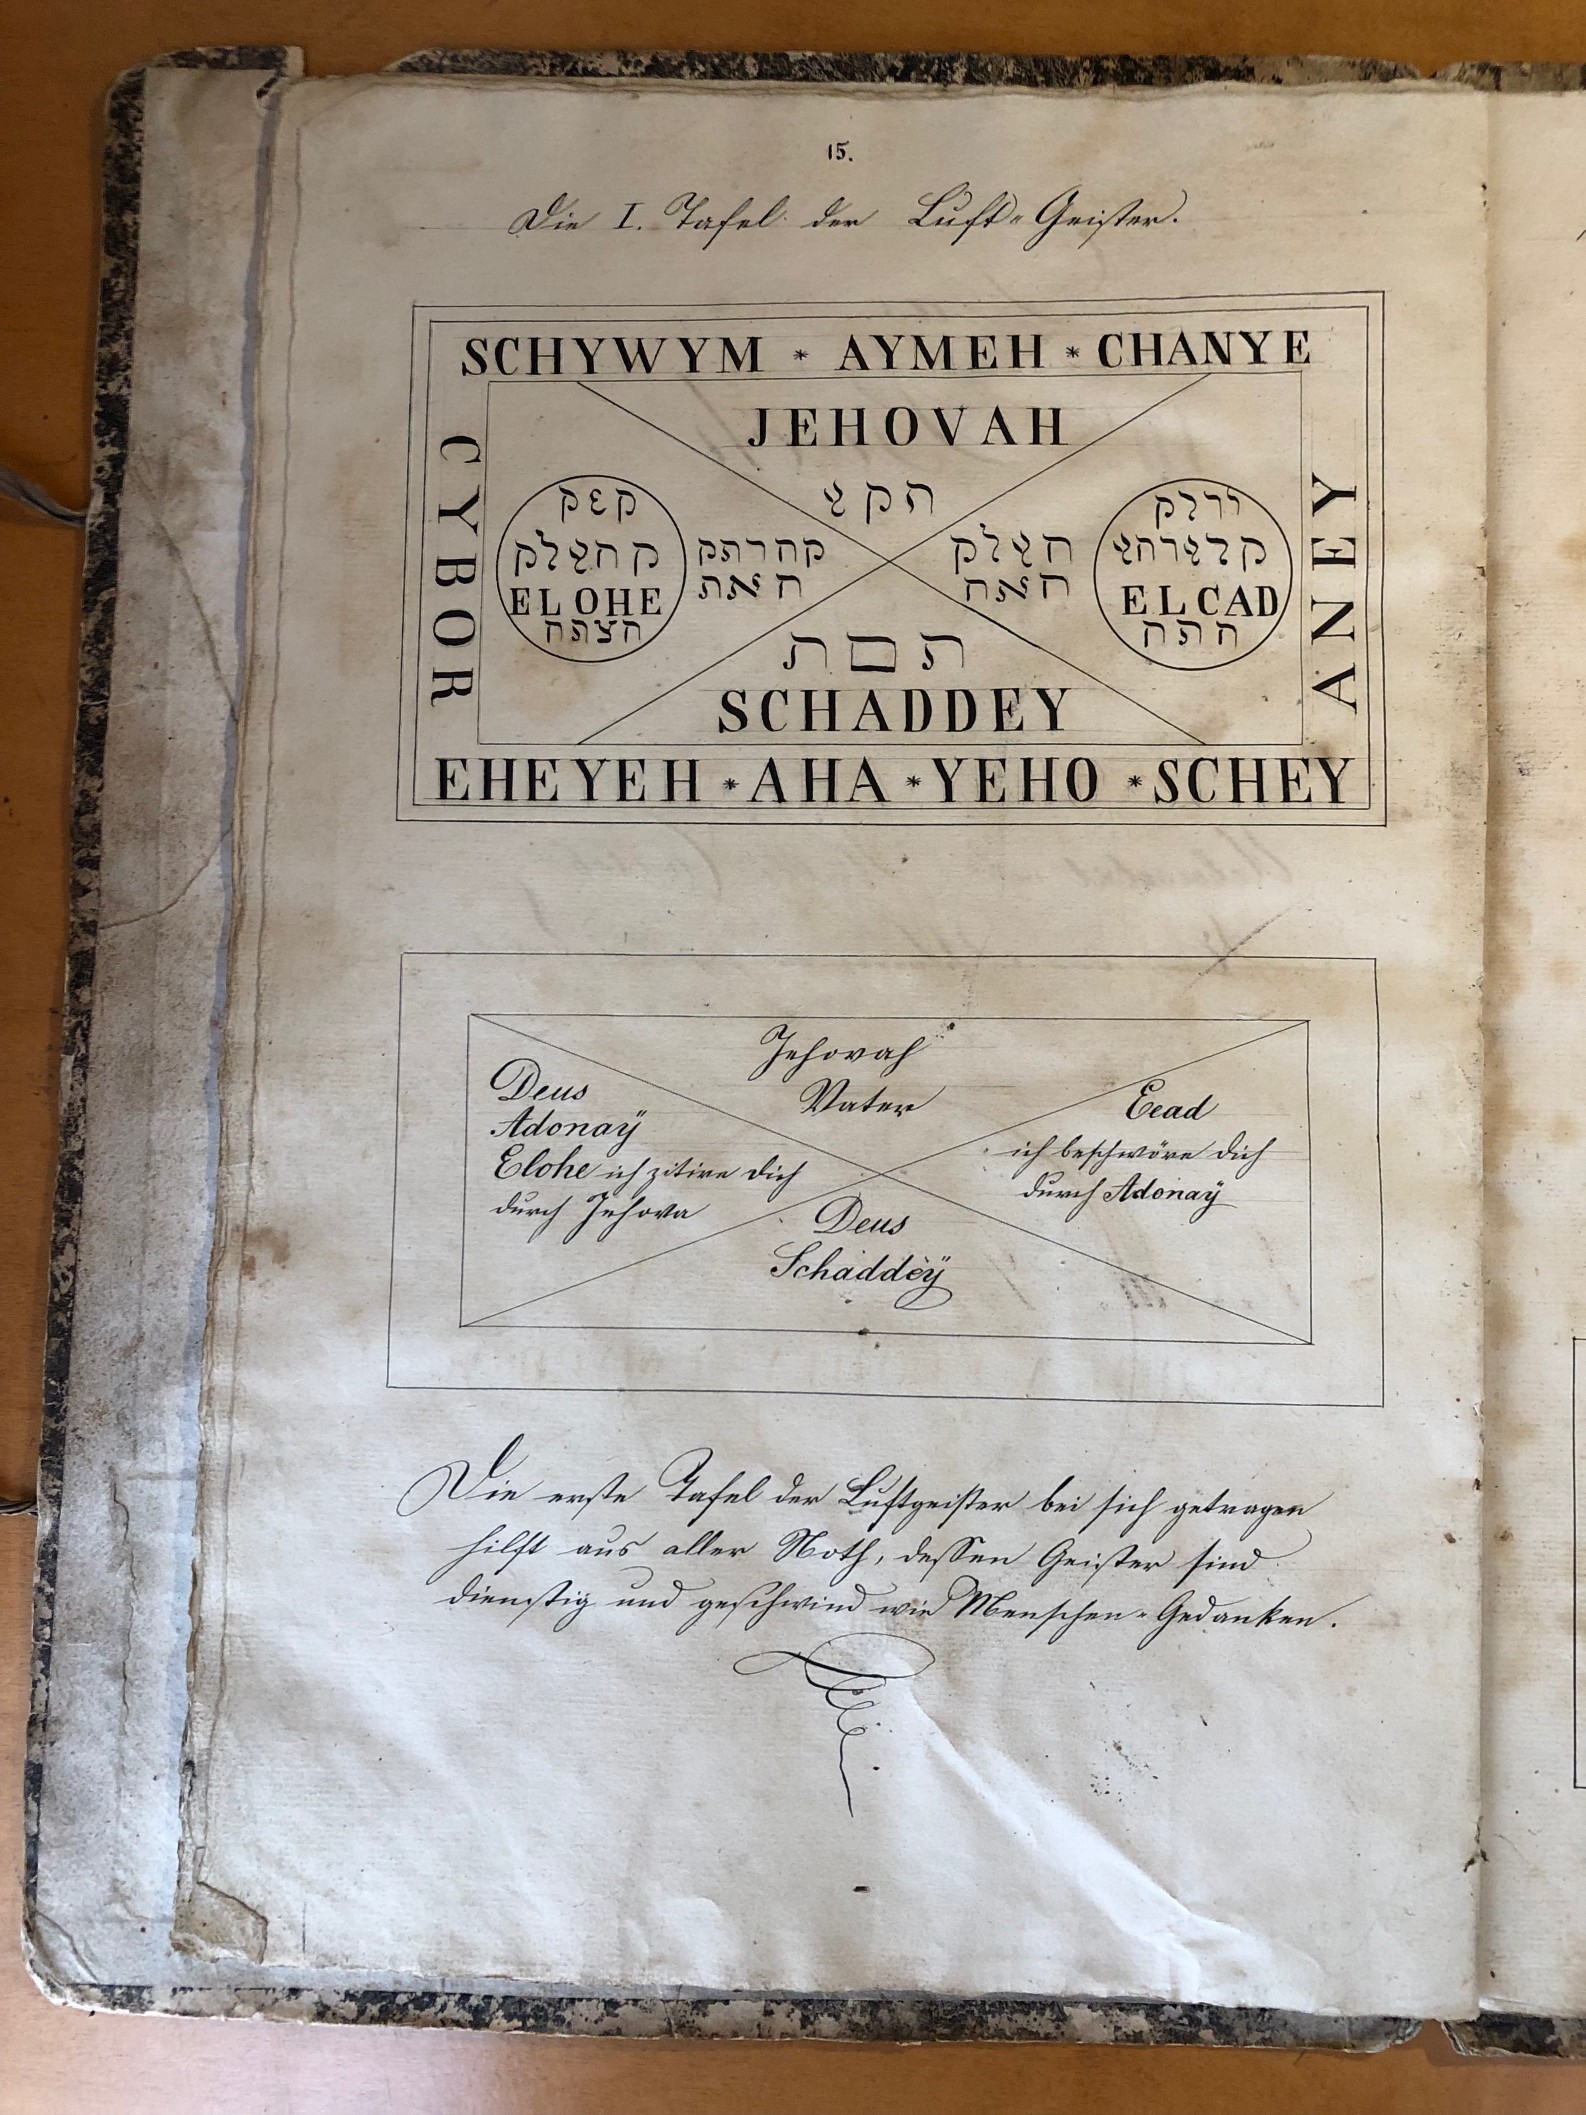 15.
Die I. Tafel der Luft-Geister.
SCHYWYM * AYMEH * CHANYE
CYBOR
JEHOVAH
ELOHE
ELCAD
תםת
SCHADDEY
ANEY
EHEYEH * AHA * YEHO * SCHEY
Jehovah
Vater
Deus
Adonaÿ
Elohe ich zitire dich
durch Jehova
Eead
ich beschwöre dich
durch Adonaÿ
Deus
Schaddeÿ
Die erste Tafel der Luftgeister bei sich getragen
hilft aus aller Noth, dessen Geister sind
dienstig und geschwind wie Menschen-Gedanken.